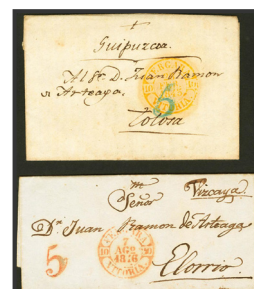 Guipuzcoa.
Al Sr. D. Juan Ramon
de Arteaga.
5
Tolosa
Señor
Vizcaya.
Dn. Juan Ramon de Arteaga
5
VITORIA
Elorrio.